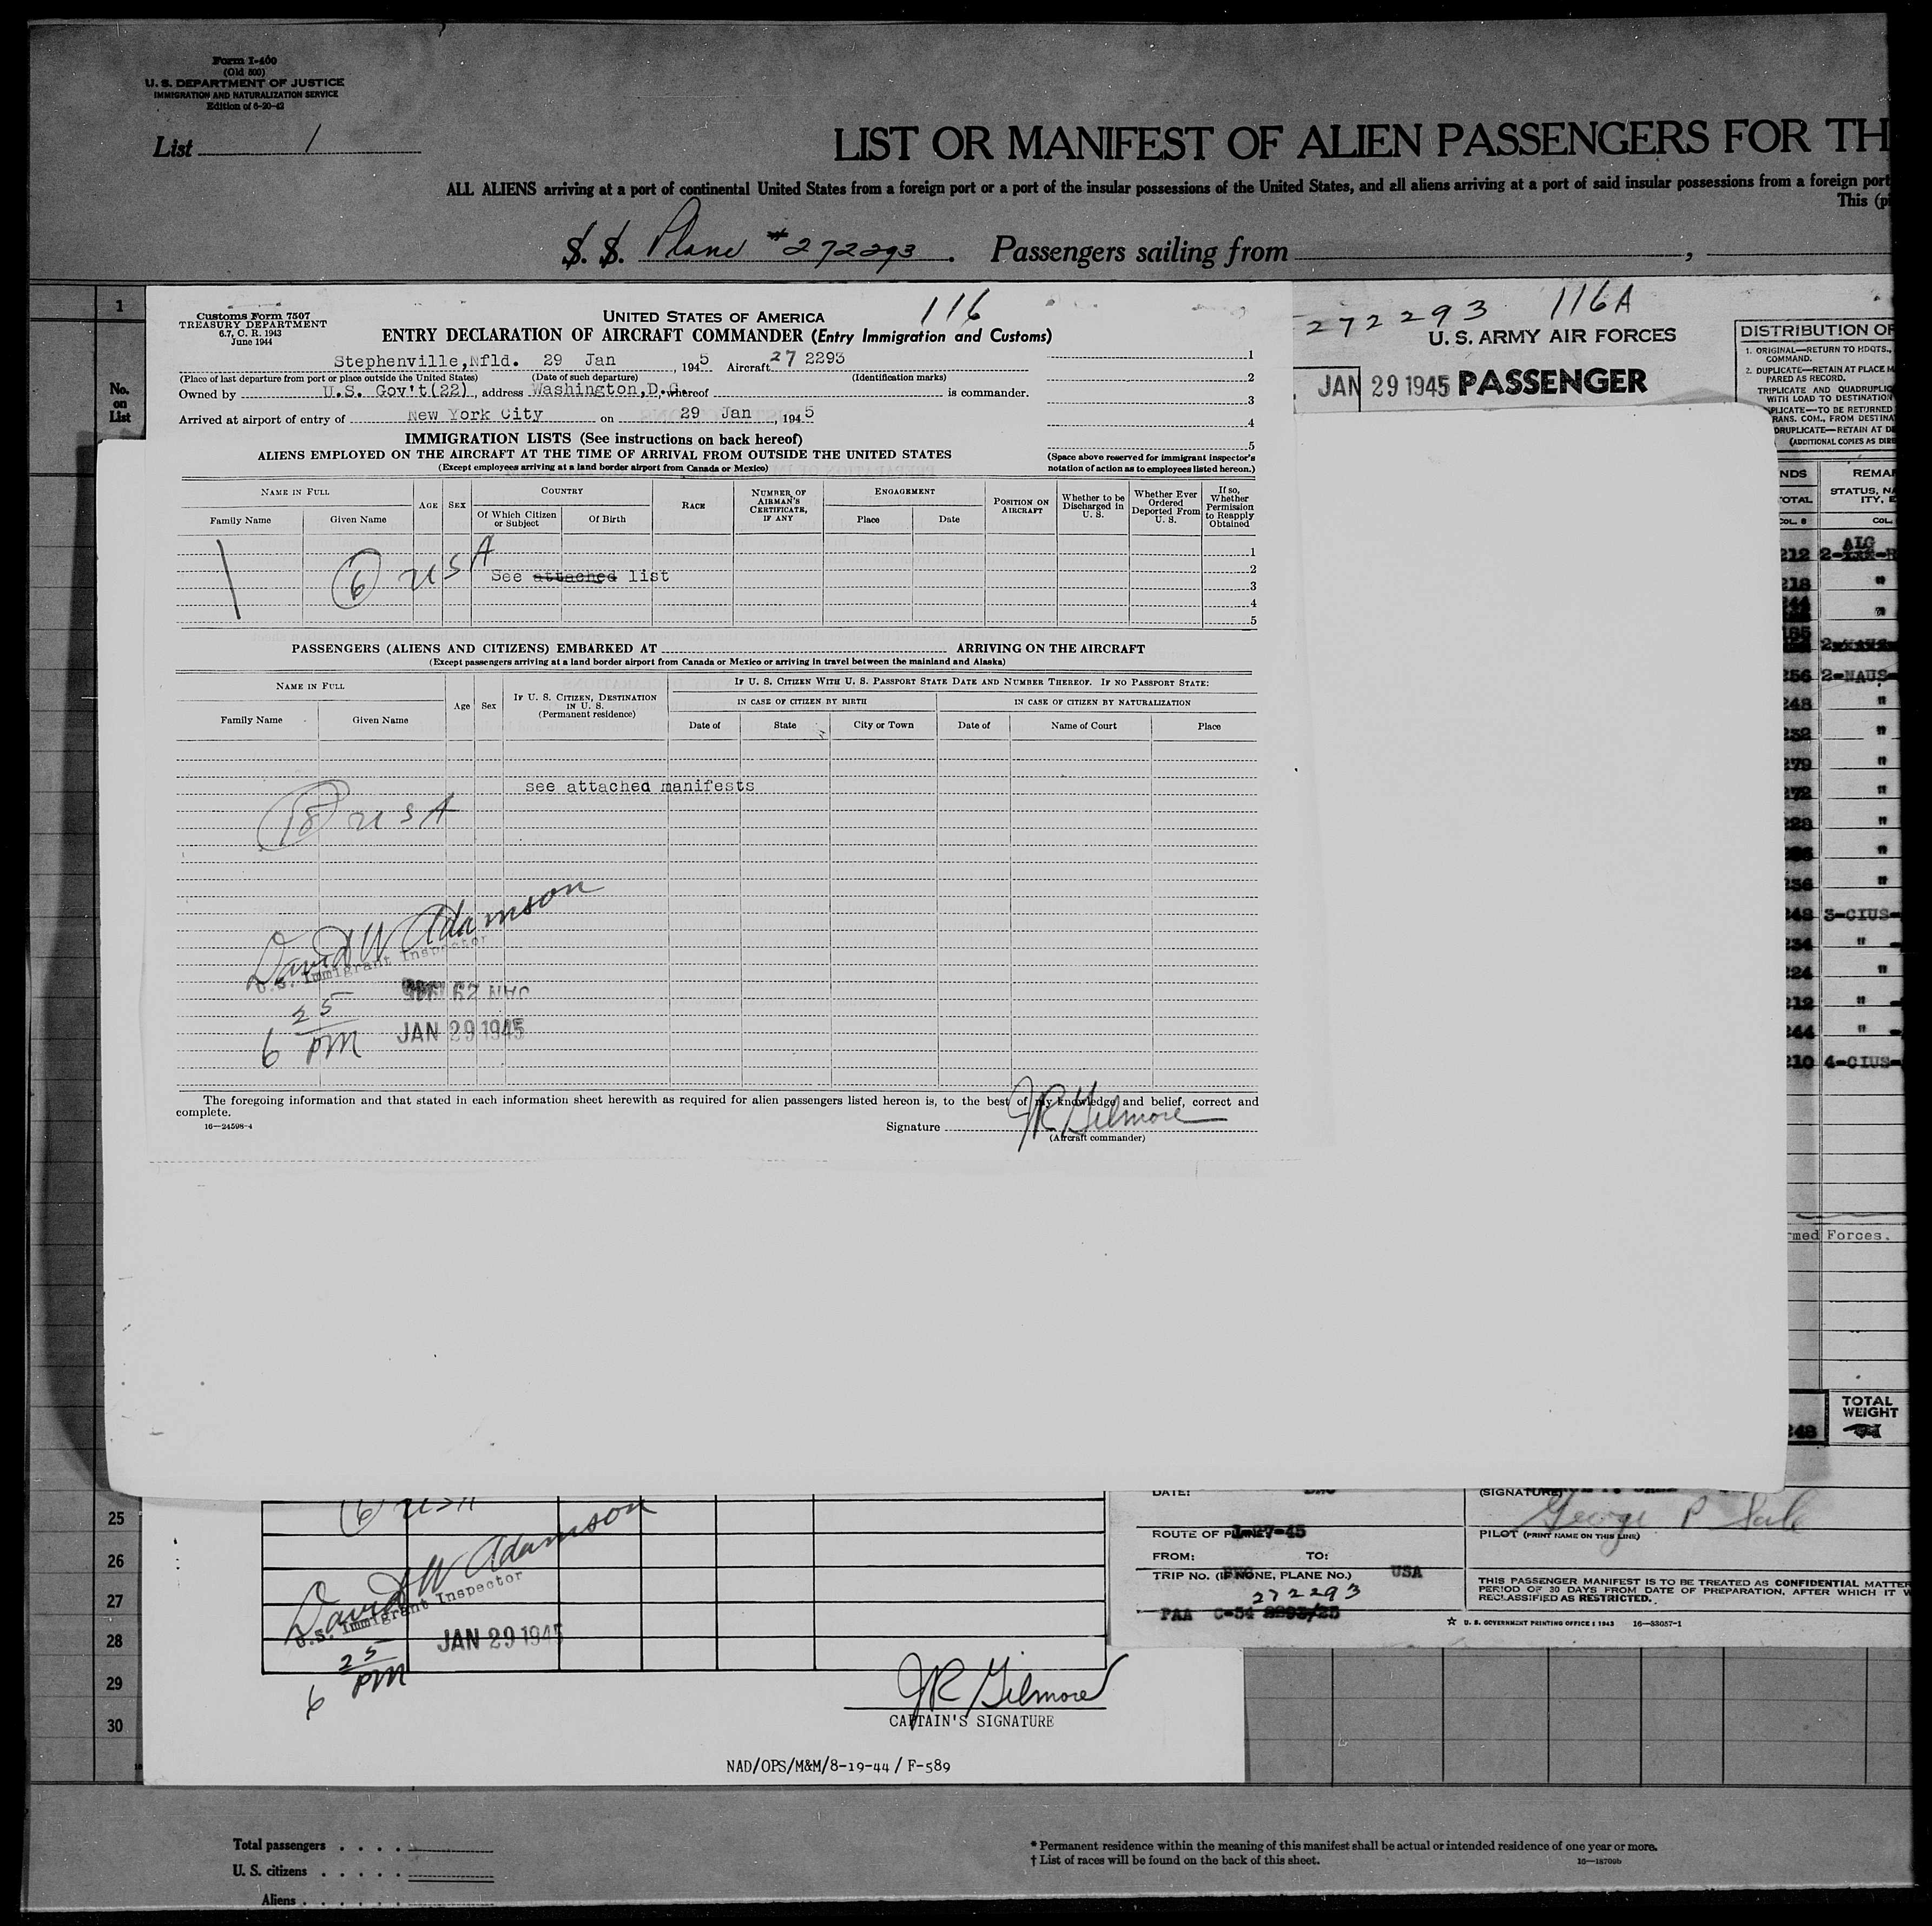 Form I-460
(Old 500)
U. S. DEPARTMENT OF JUSTICE
IMMIGRATION AND NATURALIZATION SERVICE
Edition of 6-20-42
List 1
LIST OR MANIFEST OF ALIEN PASSENGERS FOR TH
ALL ALIENS arriving at a port of continental United States from a foreign port or a port of the insular possessions of the United States, and all aliens arriving at a port of said insular possessions from a foreign port
This (p
S. S. Plane #272293. Passengers sailing from ,
1
No.
on
List
Customs Form 7507
TREASURY DEPARTMENT
6.7, C. R. 1943
June 1944
116
UNITED STATES OF AMERICA
ENTRY DECLARATION OF AIRCRAFT COMMANDER (Entry Immigration and Customs)
Stephenville, Nfld. 29 Jan, 1945 Aircraft 27 2293
(Place of last departure from port or place outside the United States) (Date of such departure) (Identification marks)
Owned by U.S. Gov't(22), address Washington, D.C., whereof is commander.
Arrived at airport of entry of New York City on 29 Jan, 1945
1
2
3
4
5
(Space above reserved for immigrant inspector's
notation of action as to employees listed hereon.)
IMMIGRATION LISTS (See instructions on back hereof)
ALIENS EMPLOYED ON THE AIRCRAFT AT THE TIME OF ARRIVAL FROM OUTSIDE THE UNITED STATES
(Except employees arriving at a land border airport from Canada or Mexico)
NAME IN FULL
Family Name Given Name
AGE SEX
COUNTRY
Of Which Citizen or Subject Of Birth
RACE
NUMBER OF AIRMAN'S CERTIFICATE, IF ANY
ENGAGEMENT
Place Date
POSITION ON AIRCRAFT
Whether to be Discharged in U. S.
Whether Ever Ordered Deported From U. S.
If so, Whether Permission to Reapply Obtained
6 USA
See attached list
1
2
3
4
5
PASSENGERS (ALIENS AND CITIZENS) EMBARKED AT ARRIVING ON THE AIRCRAFT
(Except passengers arriving at a land border airport from Canada or Mexico or arriving in travel between the mainland and Alaska)
NAME IN FULL
Family Name Given Name
Age Sex
IF U. S. CITIZEN, DESTINATION IN U. S.
(Permanent residence)
IF U. S. CITIZEN WITH U. S. PASSPORT STATE DATE AND NUMBER THEREOF. IF NO PASSPORT STATE:
IN CASE OF CITIZEN BY BIRTH IN CASE OF CITIZEN BY NATURALIZATION
Date of State City or Town Date of Name of Court Place
see attached manifests
18 USA
David W Adamson
U.S. Immigrant Inspector
6 25 PM
JAN 29 1945
The foregoing information and that stated in each information sheet herewith as required for alien passengers listed hereon is, to the best of my knowledge and belief, correct and
complete.
16—24598-4
Signature JR Gilmore
(Aircraft commander)
272293 116A
U. S. ARMY AIR FORCES
JAN 29 1945 PASSENGER
DISTRIBUTION OF
1. ORIGINAL—RETURN TO HDQTS.,
COMMAND.
2. DUPLICATE—RETAIN AT PLACE
PARED AS RECORD.
TRIPLICATE AND QUADRUPLIC
WITH LOAD TO DESTINATION
PLICATE—TO BE RETURNED
RANS. COM., FROM DESTINA
DRUPLICATE—RETAIN AT DE
(ADDITIONAL COPIES AS DIRE
NDS REMAR
OTAL STATUS, NA
ITY, E
COL. 8 COL.
212
218 "
256 2-NAUS-
248 "
232 "
279 "
272 "
"
"
256 "
248 3-CIUS-
234 " -
224 "
212 " -
244 " -
210 4-CIUS-
rmed Forces.
TOTAL
WEIGHT
25
26
27
28
29
30
6 USA
David W Adamson
U.S. Immigrant Inspector
6 25 PM
JAN 29 1945
JR Gilmore
CAPTAIN'S SIGNATURE
NAD/OPS/M&M/8-19-44/F-589
DATE:
ROUTE OF P 1-27-45
FROM: TO:
TRIP NO. (IF NONE, PLANE NO.) USA
272293
PAA C-54
(SIGNATURE)
George P Sale
PILOT (PRINT NAME ON THIS LINE)
THIS PASSENGER MANIFEST IS TO BE TREATED AS CONFIDENTIAL MATTER
PERIOD OF 30 DAYS FROM DATE OF PREPARATION, AFTER WHICH IT W
RECLASSIFIED AS RESTRICTED.
☆ U. S. GOVERNMENT PRINTING OFFICE : 1943 16—33057-1
Total passengers
U. S. citizens
Aliens
* Permanent residence within the meaning of this manifest shall be actual or intended residence of one year or more.
† List of races will be found on the back of this sheet.
16—18709b